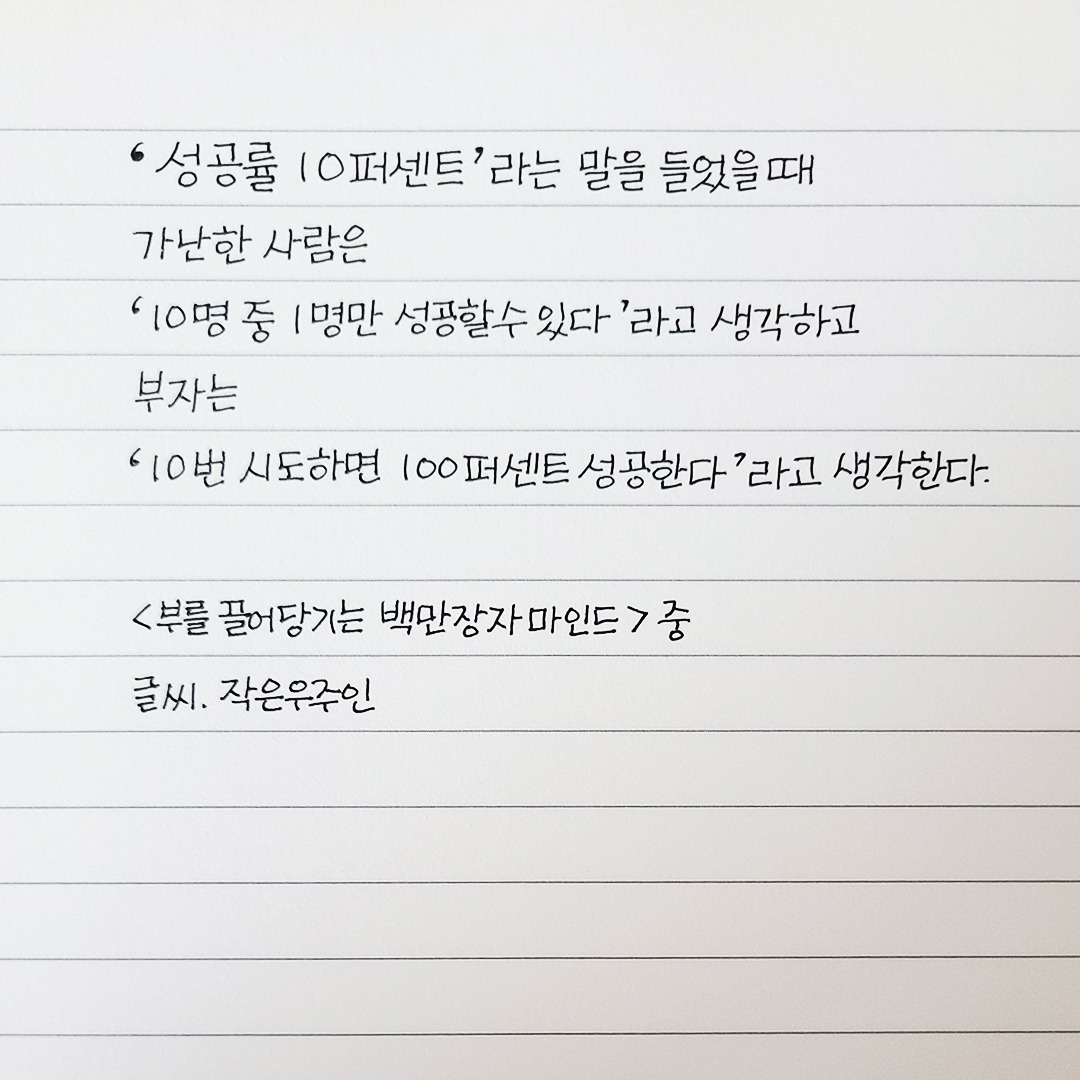 ‘성공률 10퍼센트’라는 말을 들었을때
가난한 사람은
‘10명 중 1명만 성공할수있다’라고 생각하고
부자는
‘10번 시도하면 100퍼센트 성공한다’라고 생각한다.
<부를 끌어당기는 백만장자 마인드> 중
글씨. 작은우주인